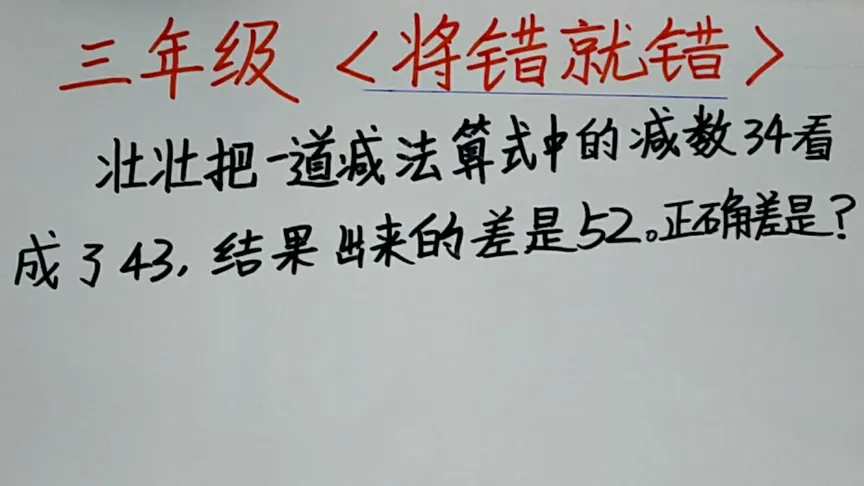 三年级<将错就错>
壮壮把一道减法算式中的减数34看
成了43,结果出来的差是52。正确差是?